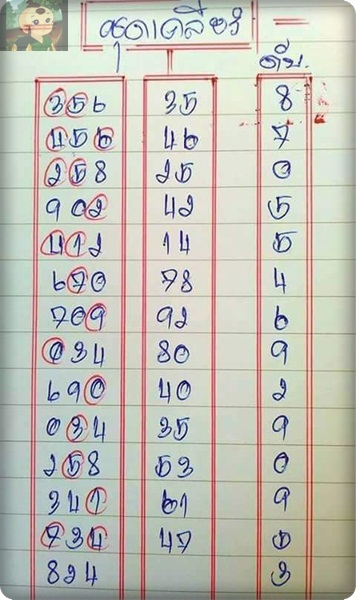 356 35 8
456 46 7
258 25 0
902 42 5
412 14 5
670 78 4
709 92 6
034 80 9
690 40 2
034 35 9
258 53 0
341 61 9
734 47 5
824 3